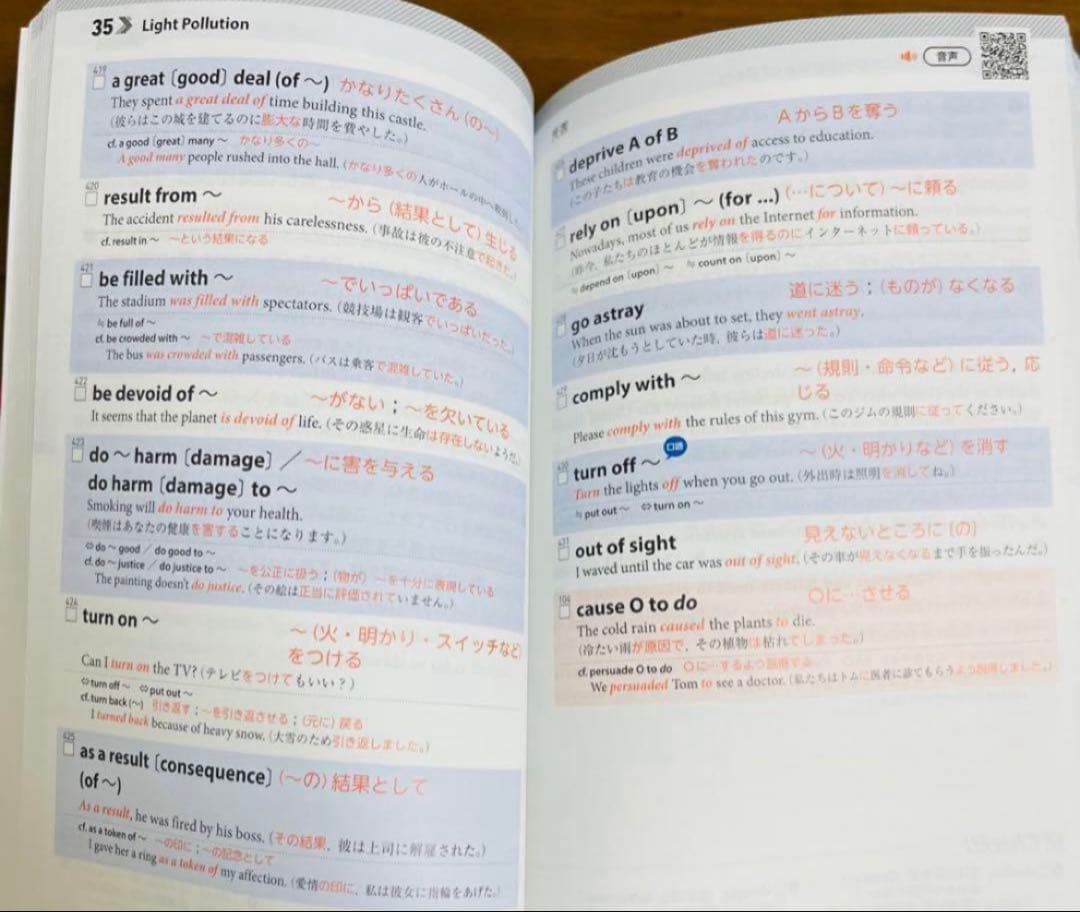 35 Light Pollution
419
a great〔good〕deal (of ～) かなりたくさん (の～)
They spent a great deal of time building this castle.
(彼らはこの城を建てるのに膨大な時間を費やした。)
cf. a good〔great〕many ～ かなり多くの～
A good many people rushed into the hall. (かなり多くの人がホールの中へ
420
result from ～ ～から (結果として) 生じる
The accident resulted from his carelessness. (事故は彼の不注意で起きた。)
cf. result in ～ ～という結果になる
421
be filled with ～ ～でいっぱいである
The stadium was filled with spectators. (競技場は観客でいっぱいだった。)
≒ be full of ～
cf. be crowded with ～ ～で混雑している
The bus was crowded with passengers. (バスは乗客で混雑していた。)
422
be devoid of ～ ～がない；～を欠いている
It seems that the planet is devoid of life. (その惑星に生命は存在しないようだ。)
423
do ～ harm〔damage〕／ ～に害を与える
do harm〔damage〕to ～
Smoking will do harm to your health.
(喫煙はあなたの健康を害することになります。)
⇔ do ～ good／do good to ～
cf. do ～ justice／do justice to ～ ～を公正に扱う；(物が) ～を十分に表現している
The painting doesn't do justice. (その絵は正当に評価されていません。)
424
turn on ～ ～ (火・明かり・スイッチなど)
をつける
Can I turn on the TV? (テレビをつけてもいい？)
⇔ turn off ～ ⇔ put out ～
cf. turn back (～) 引き返す；～を引き返させる；(元に) 戻る
I turned back because of heavy snow. (大雪のため引き返しました。)
425
as a result〔consequence〕(～の) 結果として
(of ～)
As a result, he was fired by his boss. (その結果，彼は上司に解雇された。)
cf. as a token of ～ ～の印に；～の記念として
I gave her a ring as a token of my affection. (愛情の印に，私は彼女に指輪をあげた。)
音声
deprive A of B AからBを奪う
These children were deprived of access to education.
(この子たちは教育の機会を奪われたのです。)
rely on〔upon〕～ (for ...) (…について) ～に頼る
Nowadays, most of us rely on the Internet for information.
(昨今，私たちのほとんどが情報を得るのにインターネットに頼っている。)
≒ depend on〔upon〕～ ≒ count on〔upon〕～
go astray 道に迷う；(ものが) なくなる
When the sun was about to set, they went astray.
(夕日が沈もうとしていた時，彼らは道に迷った。)
comply with ～ ～ (規則・命令など) に従う，応
じる
Please comply with the rules of this gym. (このジムの規則に従ってください。)
430
turn off ～ 口語 ～ (火・明かりなど) を消す
Turn the lights off when you go out. (外出時は照明を消してね。)
≒ put out ～ ⇔ turn on ～
431
out of sight 見えないところに (の)
I waved until the car was out of sight. (その車が見えなくなるまで手を振ったんだ。)
104
cause O to do Oに…させる
The cold rain caused the plants to die.
(冷たい雨が原因で，その植物は枯れてしまった。)
cf. persuade O to do Oに…するよう説得する
We persuaded Tom to see a doctor. (私たちはトムに医者に診てもらうよう説得しました。)